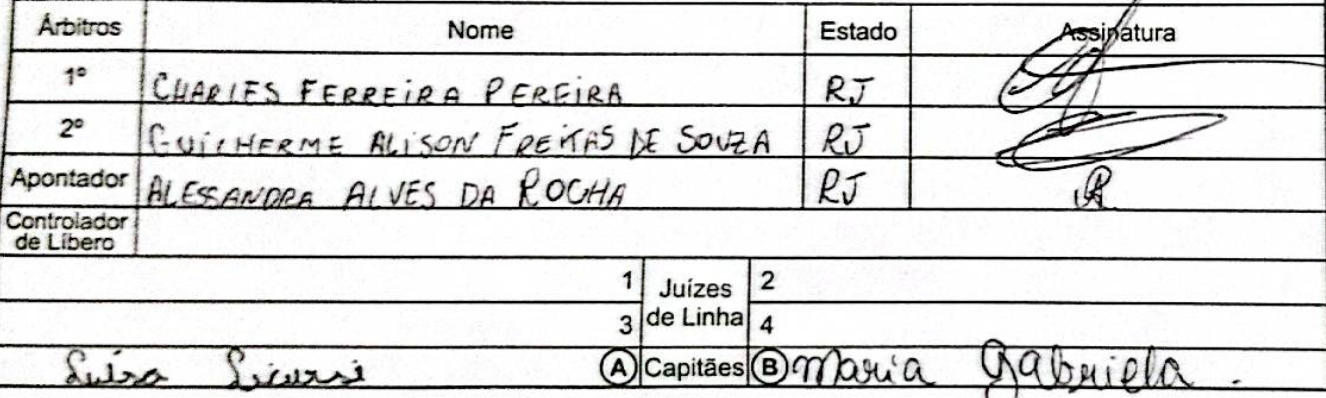 Árbitros Nome Estado Assinatura
1º CHARLES FERREIRA PEREIRA RJ
2º GUILHERME ALISON FREITAS DE SOUZA RJ
Apontador ALESSANDRA ALVES DA ROCHA RJ
Controlador
de Líbero
1 Juízes 2
3 de Linha 4
Luísa A Capitães B Maria Gabriela.